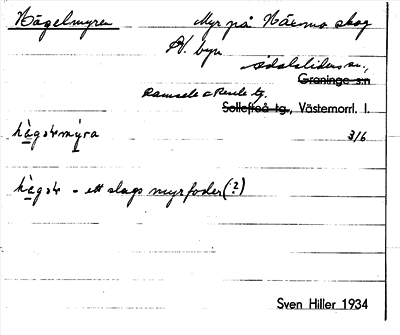 Hägelmyren Myr på Härmo skog
N. byn
Ådalslidens sn.,
Graninge s:n
Ramsele o Resele tg.
Sollefteå tg., Västernorrl. l.
3/6
- ett slags myrfoder (?)
Sven Hiller 1934